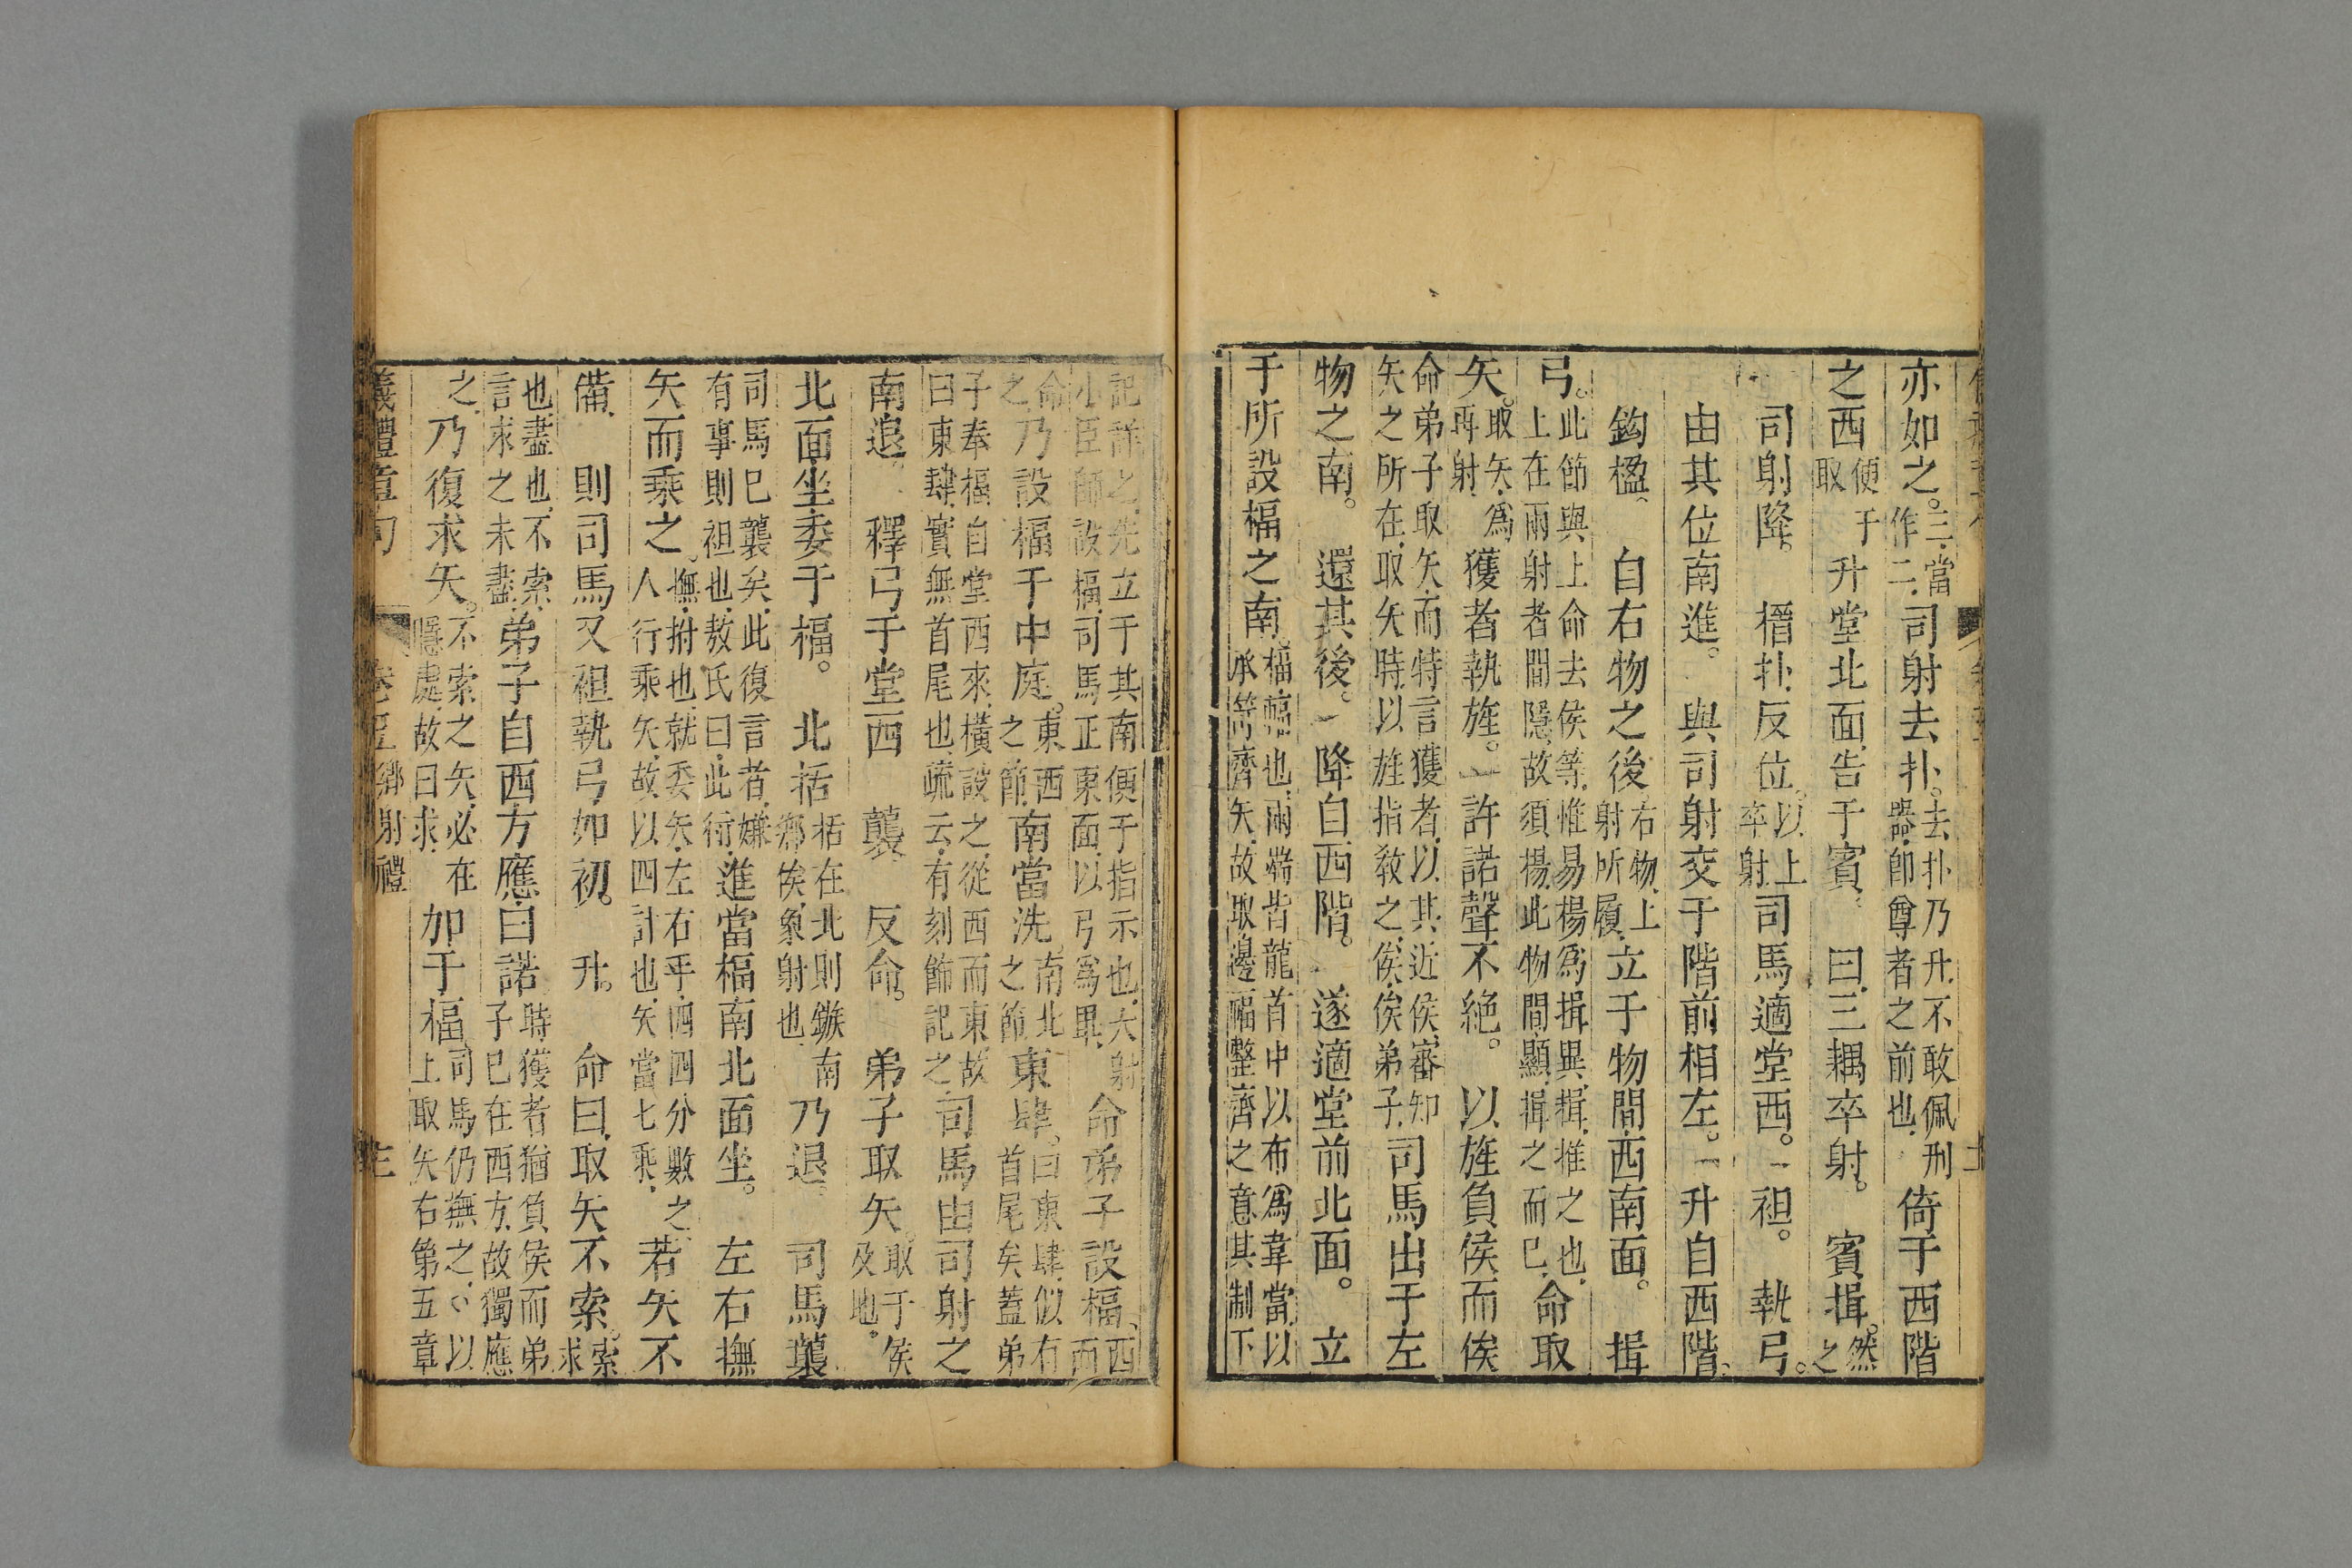 亦如之。三當作二、司射去扑。去扑乃升、不敢佩刑器、卽尊者之前也、倚于西階
之西便于取升堂北面、告于賓、曰、三耦卒射。賓揖。然之
司射降。搢扑、反位。以上卒射、司馬適堂西。袒。執弓。
由其位南進。與司射交于階前相左。升自西階、
鉤楹。自右物之後、右物、上射所履、立于物間、西南面。揖
弓。此節與上命去侯等、惟易揚爲揖異、揖、推之也、上在兩射者間隱、故須揚、此物間顯、揖之而已、命取
矢。取矢、爲再射、獲者執旌。許諾聲不絕。以旌負侯、而俟
命弟子取矢、而特言獲者、以其近侯、審知矢之所在、取矢時、以旌指敎之、侯、俟弟子、司馬出于左
物之南。還其後。降自西階。遂適堂前北面。立
于所設楅之南。楅、幅也、兩端皆龍首、中以布爲韋當、以承笴齊矢、故取邊幅整齊之意、其制下
記詳之、先立于其南、便于指示也、大射小臣師設楅、司馬正東面、以弓爲畢、命弟子設楅、西面
命之、乃設楅于中庭。東西之節、南當洗。南北之節東肆。曰東肆、似有首尾矣、蓋弟
子奉楅自堂西來、橫設之、從西而東、故曰東肆、實無首尾也、疏云、有刻飾記之、司馬由司射之
南退。釋弓于堂西襲反命。弟子取矢。取于侯及地。
北面坐委于楅。北括括在北、則鏃南鄉侯、象射也、乃退。司馬襲
司馬已襲矣、此復言者、嫌有事則袒也、敖氏曰、此衍、進當楅南、北面坐。左右撫
矢而乘之。撫、拊也、就委矢、左右手四四分數之、人行乘矢、故以四計也、矢當七乘、若矢不
備、則司馬又袒執弓如初。升。命曰、取矢不索。索求
也盡也、不索、言求之未盡、弟子自西方應、曰諾時獲者猶負侯、而弟子已在西方、故獨應
之、乃復求矢。不索之矢、必在隱處、故曰求、加于楅司馬仍撫之、以上取矢右第五章
義禮章句 卷五 鄉射禮